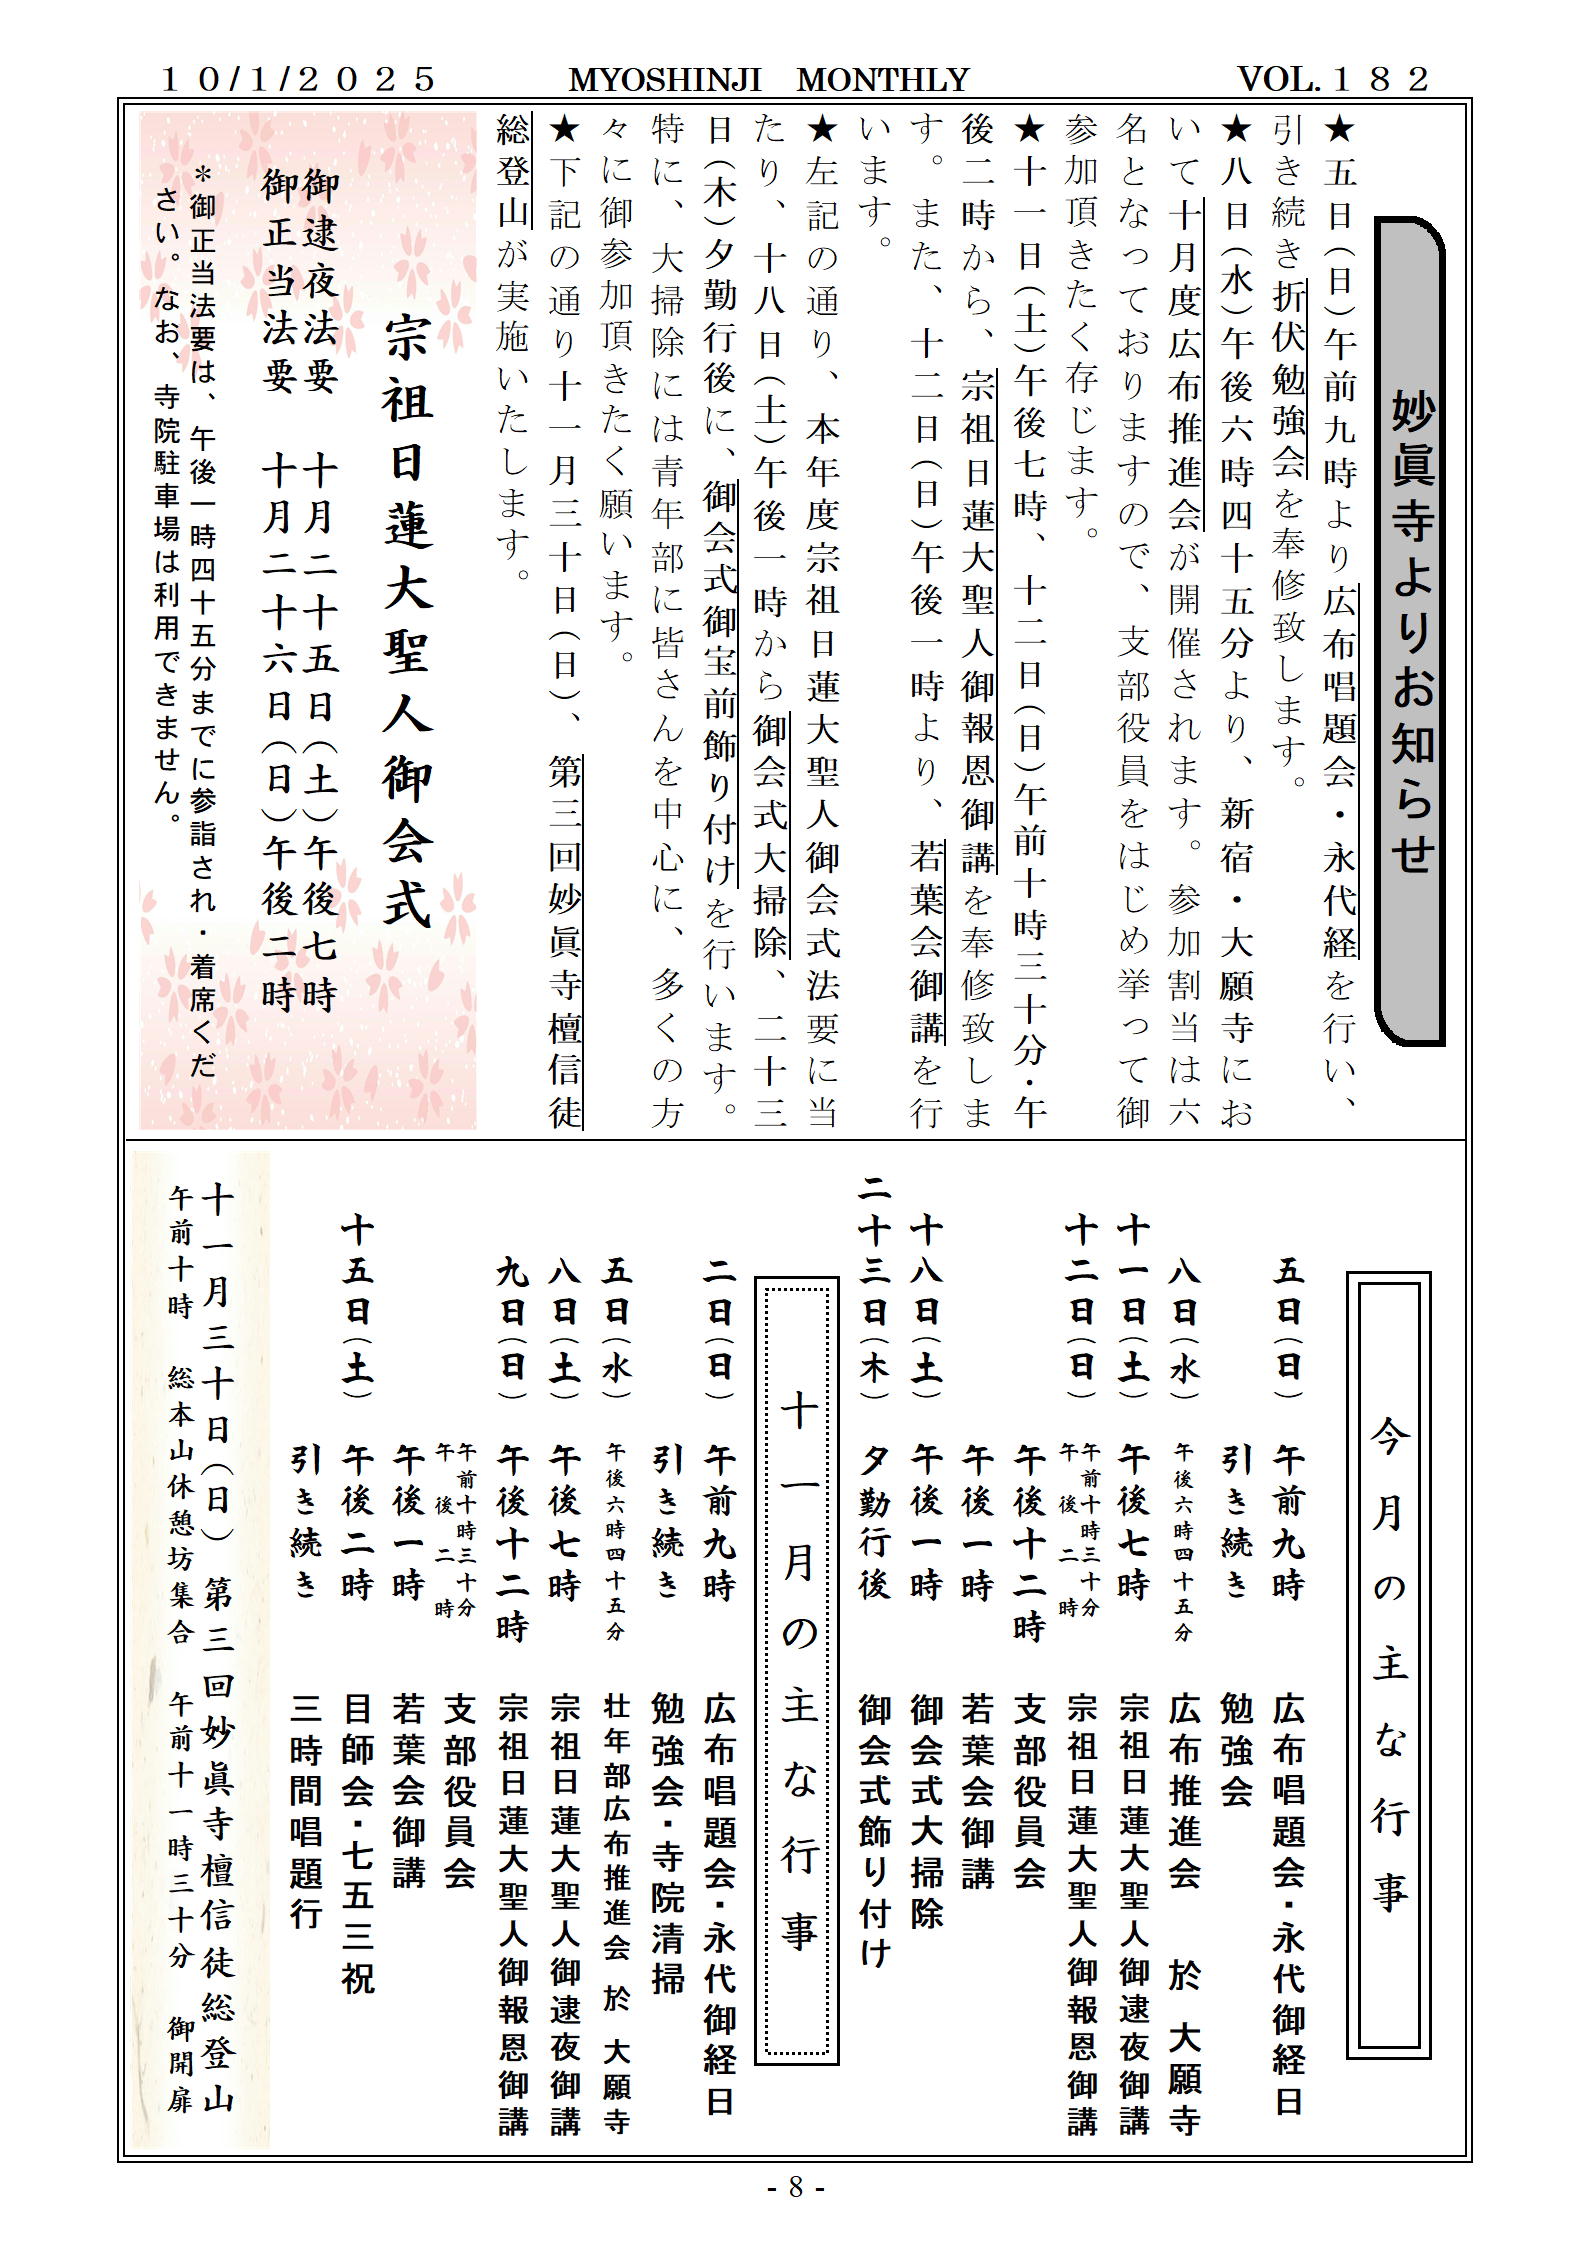 １０/１/２０２５
MYOSHINJI MONTHLY
VOL.１８２
妙眞寺よりお知らせ
★五日(日)午前九時より広布唱題会・永代経を行い、
引き続き折伏勉強会を奉修致します。
★八日(水)午後六時四十五分より、新宿・大願寺にお
いて十月度広布推進会が開催されます。参加割当は六
名となっておりますので、支部役員をはじめ挙って御
参加頂きたく存じます。
★十一日(土)午後七時、十二日(日)午前十時三十分・午
後二時から、宗祖日蓮大聖人御報恩御講を奉修致しま
す。また、十二日(日)午後一時より、若葉会御講を行
います。
★左記の通り、本年度宗祖日蓮大聖人御会式法要に当
たり、十八日(土)午後一時から御会式大掃除、二十三
日(木)夕勤行後に、御会式御宝前飾り付けを行います。
特に、大掃除には青年部に皆さんを中心に、多くの方
々に御参加頂きたく願います。
★下記の通り十一月三十日(日)、第三回妙眞寺檀信徒
総登山が実施いたします。
宗祖日蓮大聖人御会式
御逮夜法要　十月二十五日(土)午後七時
御正当法要　十月二十六日(日)午後二時
＊御正当法要は、午後一時四十五分までに参詣され・着席くだ
さい。なお、寺院駐車場は利用できません。
今月の主な行事
五日(日)　午前九時　広布唱題会・永代御経日
引き続き　勉強会
八日(水)　午後六時四十五分　広布推進会　於 大願寺
十一日(土)　午後七時　宗祖日蓮大聖人御逮夜御講
十二日(日)　午前十時三十分 午後二時　宗祖日蓮大聖人御報恩御講
午後十二時　支部役員会
午後一時　若葉会御講
十八日(土)　午後一時　御会式大掃除
二十三日(木)　夕勤行後　御会式飾り付け
十一月の主な行事
二日(日)　午前九時　広布唱題会・永代御経日
引き続き　勉強会・寺院清掃
五日(水)　午後六時四十五分　壮年部広布推進会 於 大願寺
八日(土)　午後七時　宗祖日蓮大聖人御逮夜御講
九日(日)　午後十二時　宗祖日蓮大聖人御報恩御講
午前十時三十分 午後二時　支部役員会
午後一時　若葉会御講
十五日(土)　午後二時　目師会・七五三祝
引き続き　三時間唱題行
十一月三十日(日)　第三回妙眞寺檀信徒総登山
午前十時　総本山休憩坊集合　午前十一時三十分　御開扉
- 8 -